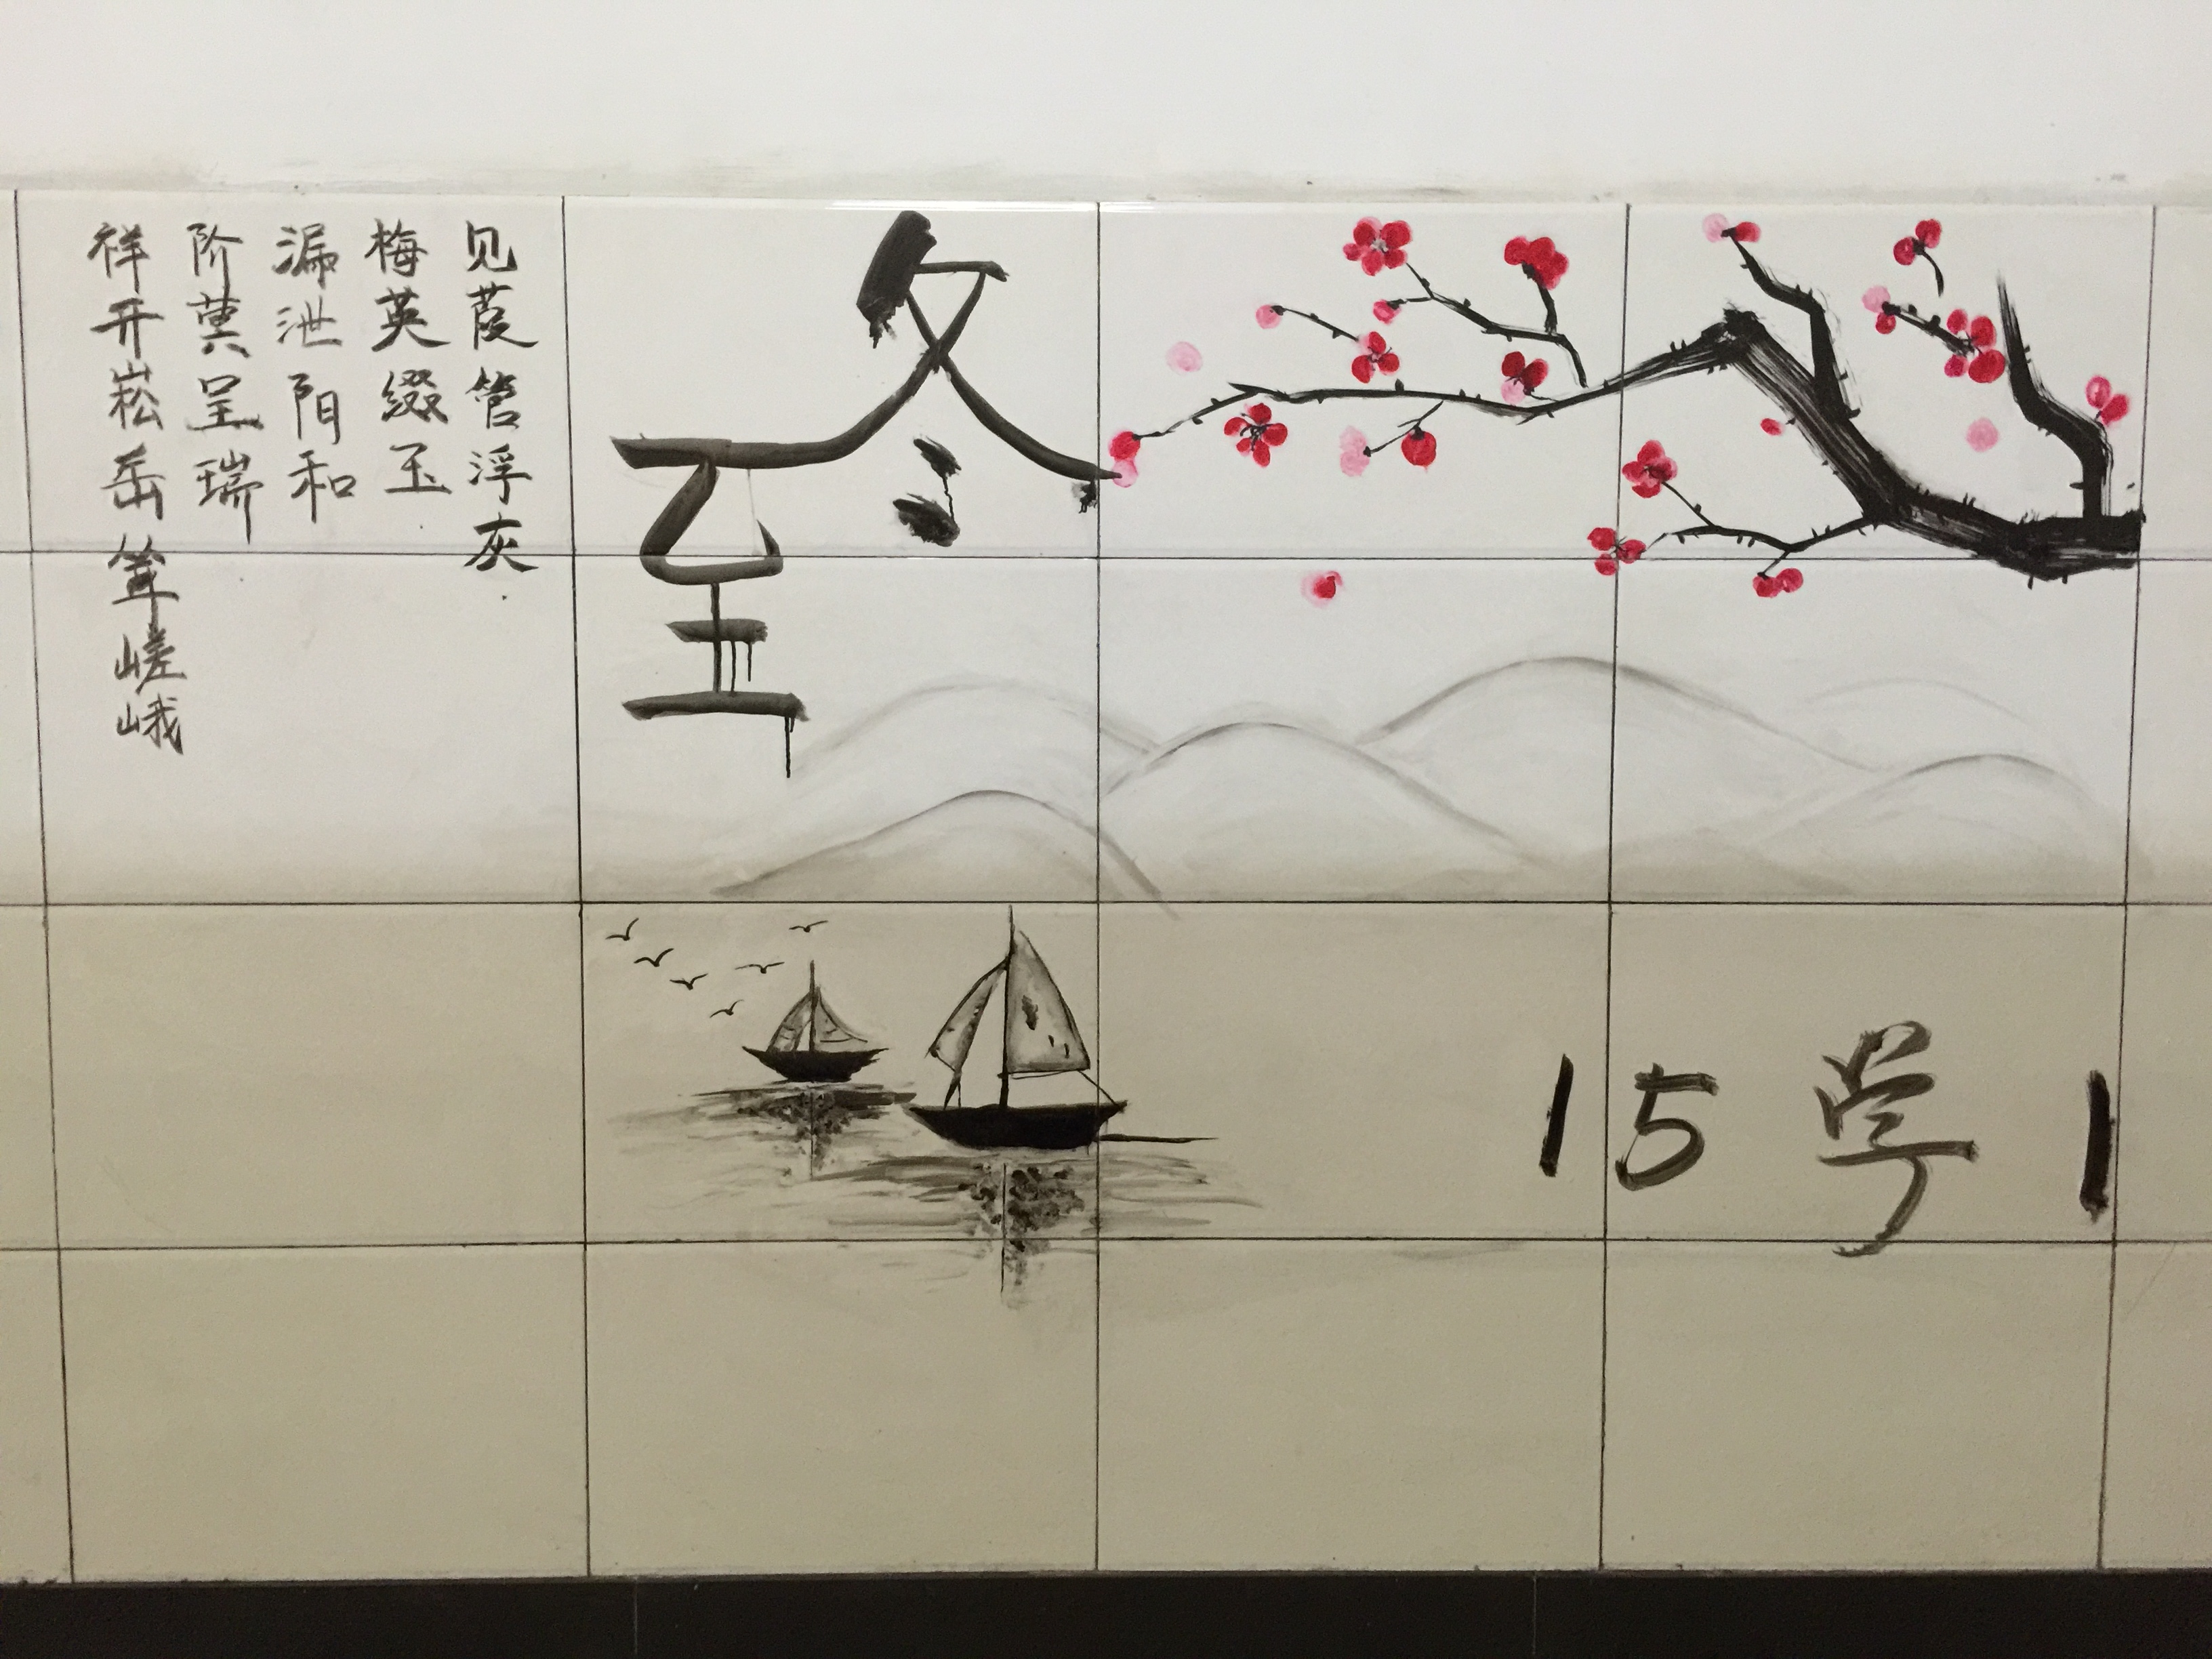 见葭管浮灰
梅英缀玉
漏泄阳和
阶蓂呈瑞
祥开崧岳耸嵯峨
冬至
15学1